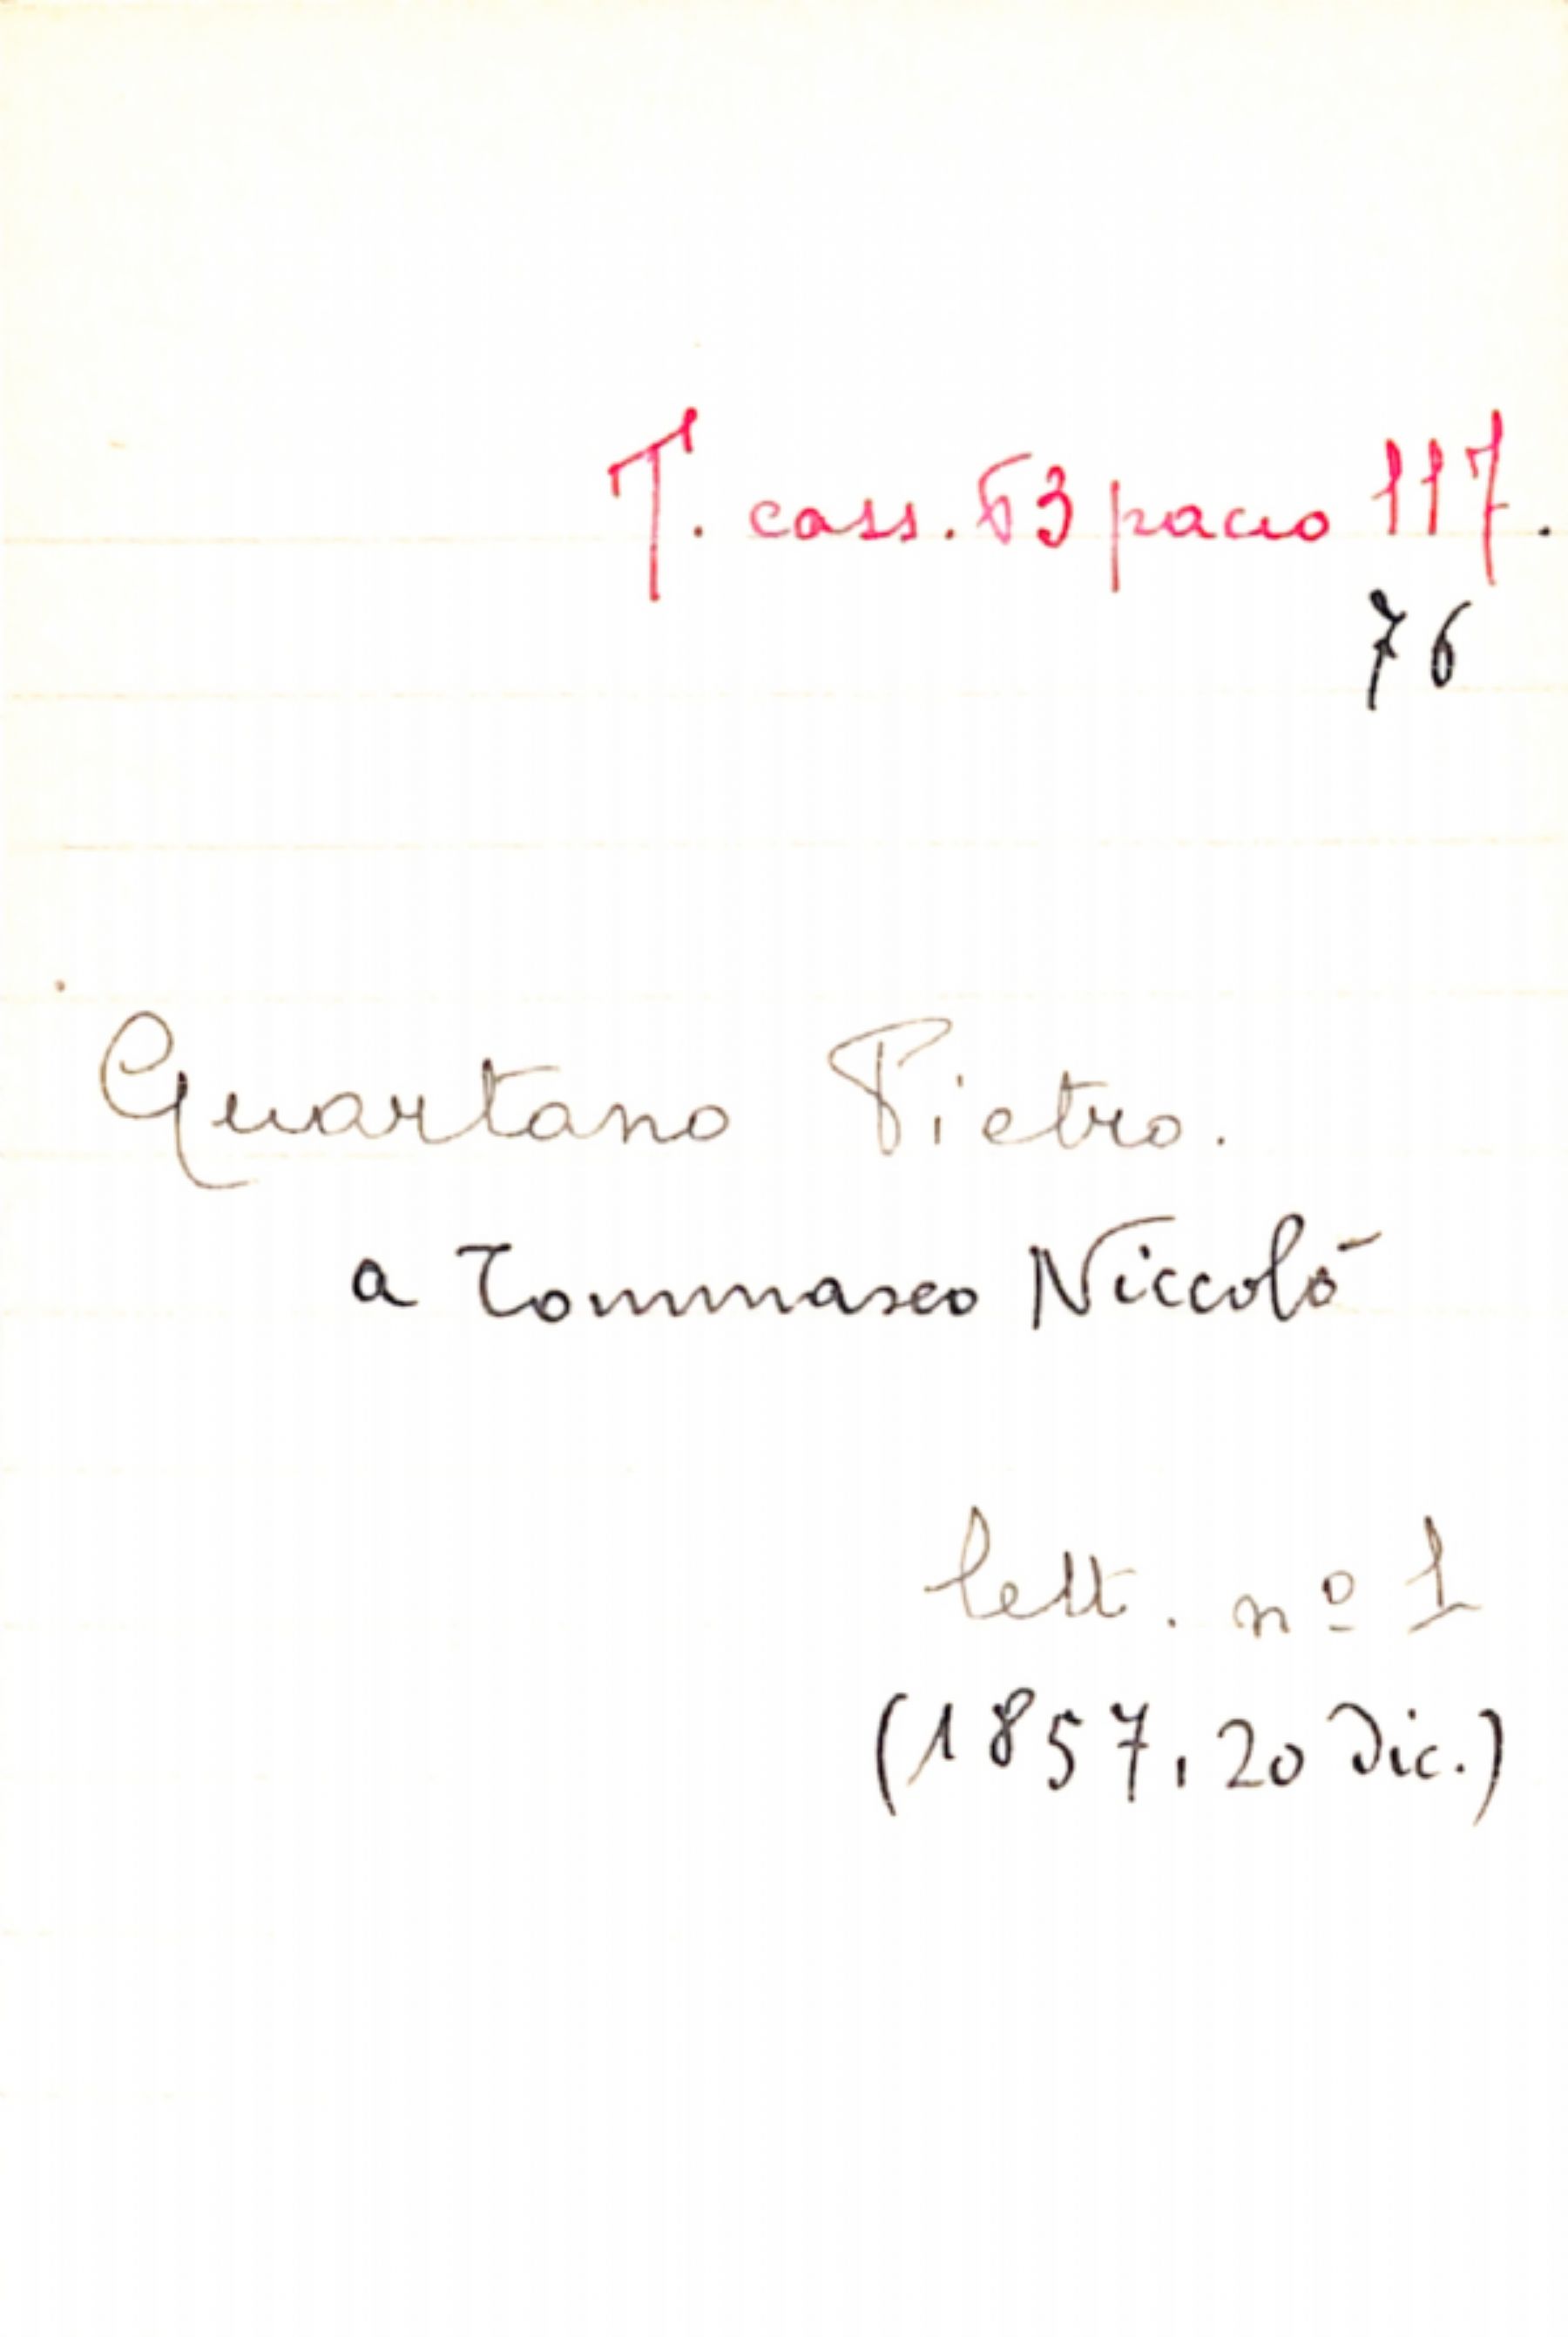 T. cass. 63 pacco 117.
76
Quartano Pietro.
a Tommaseo Niccolò
lett. nº 1
(1857, 20 dic.)